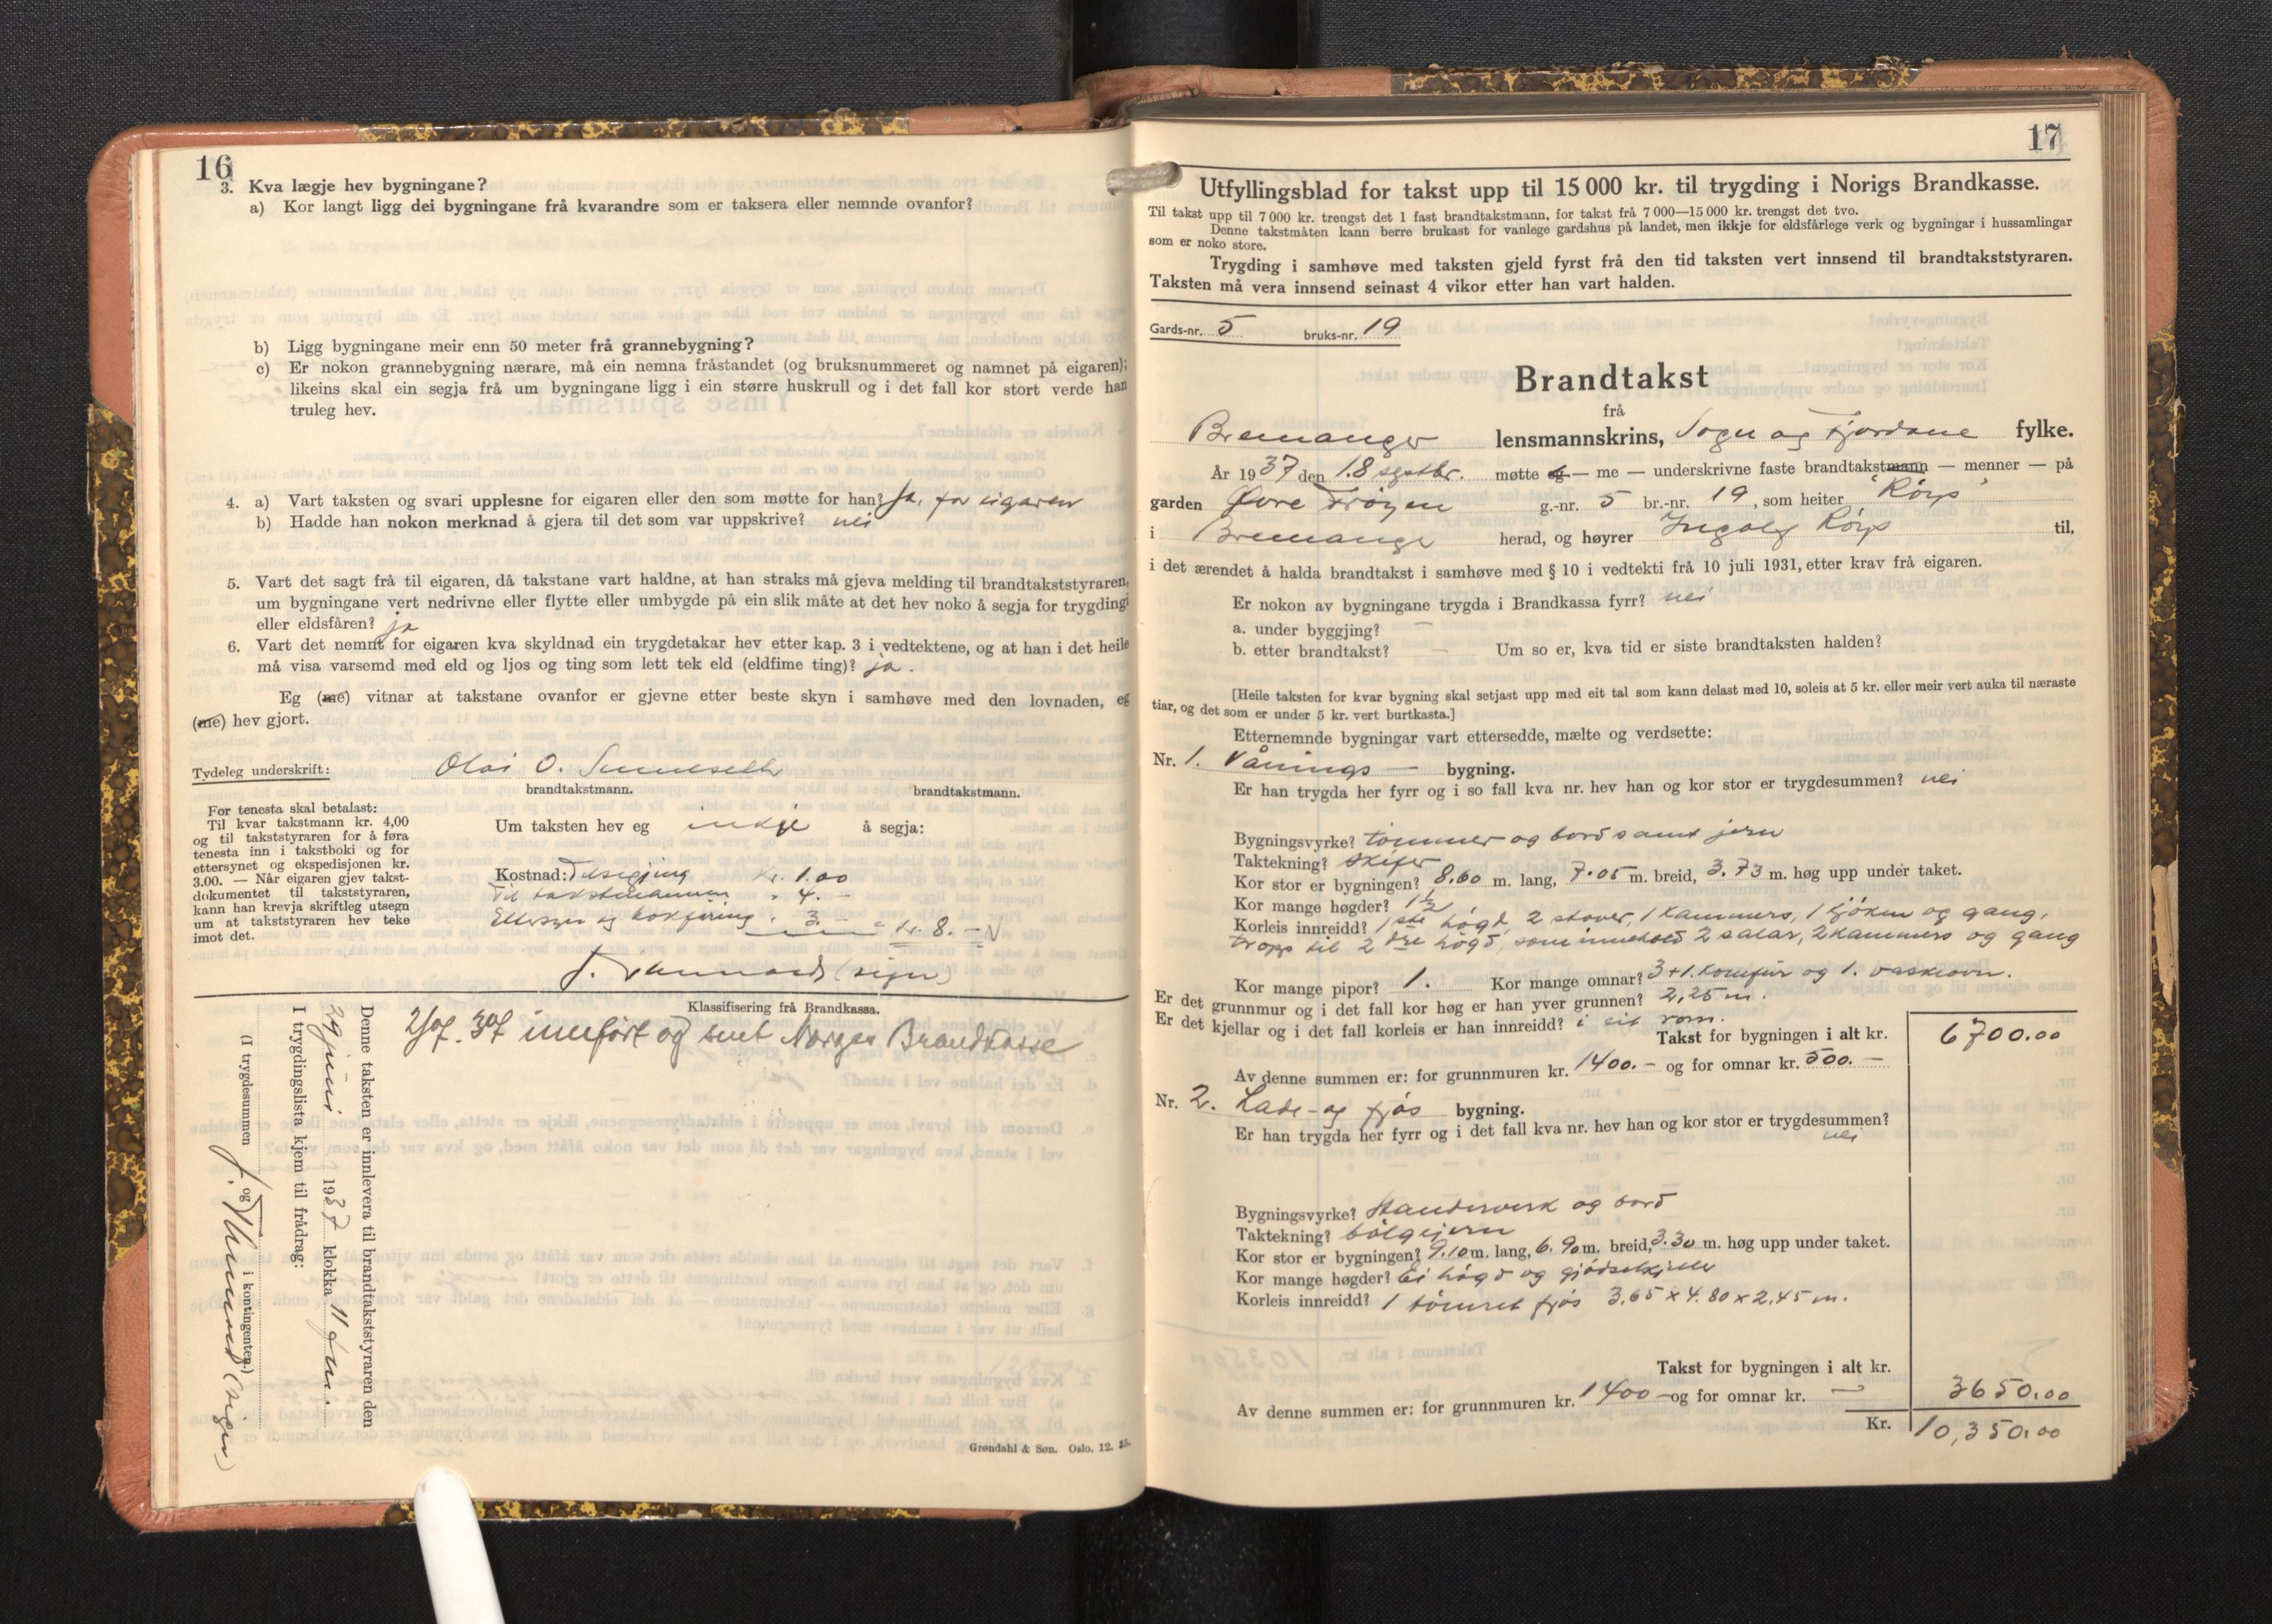 16
3. Kva lægje hev bygningane?
a) Kor langt ligg dei bygningane frå kvarandre som er taksera eller nemnde ovanfor?
b) Ligg bygningane meir enn 50 meter frå grannebygning?
c) Er nokon grannebygning nærare, må ein nemna fråstandet (og bruksnummeret og namnet på eigaren);
likeins skal ein segja frå um bygningane ligg i ein større huskrull og i det fall kor stort verde han
truleg hev.
4. a) Vart taksten og svari upplesne for eigaren eller den som møtte for han? Ja, for eigaren
b) Hadde han nokon merknad å gjera til det som var uppskrive? nei
5. Vart det sagt frå til eigaren, då takstane vart haldne, at han straks må gjeva melding til brandtakststyraren,
um bygningane vert nedrivne eller flytte eller umbygde på ein slik måte at det hev noko å segja for trygdingi
eller eldsfåren? ja
6. Vart det nemnt for eigaren kva skyldnad ein trygdetakar hev etter kap. 3 i vedtektene, og at han i det heile
må visa varsemd med eld og ljos og ting som lett tek eld (eldfime ting)? ja.
Eg (me) vitnar at takstane ovanfor er gjevne etter beste skyn i samhøve med den lovnaden, eg
(me) hev gjort.
Tydeleg underskrift: Olai O.
brandtakstmann. brandtakstmann.
For tenesta skal betalast:
Til kvar takstmann kr. 4,00
og til takststyraren for å føra
tenesta inn i takstboki og for
ettersynet og ekspedisjonen kr.
3.00. — Når eigaren gjev takst-
dokumentet til takststyraren,
kann han krevja skriftleg utsegn
um at takststyraren hev teke
imot det.
Um taksten hev eg inkje å segja:
Kostnad: Tilsigjing kr. 1.00
Til takstmannen " 4. —
Ettersyn og bokføring " 3. — = kr. 8. —
J. (sign)
Klassifisering frå Brandkassa.
2/7. 37 innført og sent Norges Brandkasse
Denne taksten er innlevera til brandtakststyraren den
29 juni 1937 klokka 11 fm.
I trygdingslista kjem til frådrag:
(I trygdesummen og i kontingenten.)
J. (sign)
Grøndahl & Søn. Oslo. 12. 35.
17
Utfyllingsblad for takst upp til 15 000 kr. til trygding i Norigs Brandkasse.
Til takst upp til 7 000 kr. trengst det 1 fast brandtakstmann, for takst frå 7 000—15 000 kr. trengst det tvo.
Denne takstmåten kann berre brukast for vanlege gardshus på landet, men ikkje for eldsfårlege verk og bygningar i hussamlingar
som er noko store.
Trygding i samhøve med taksten gjeld fyrst frå den tid taksten vert innsend til brandtakststyraren.
Taksten må vera innsend seinast 4 vikor etter han vart halden.
Gards-nr. 5 bruks-nr. 19
Brandtakst
frå
Bremanger lensmannskrins, Sogn og Fjordane fylke.
År 1937 den 18 septbr. møtte eg — me — underskrivne faste brandtakstmann — menner — på
garden Øvre Frøyen g.-nr. 5 br.-nr. 19, som heiter "Røys"
i Bremanger herad, og høyrer Ingolf Røys til,
i det ærendet å halda brandtakst i samhøve med § 10 i vedtekti frå 10 juli 1931, etter krav frå eigaren.
Er nokon av bygningane trygda i Brandkassa fyrr? nei
a. under byggjing? —
b. etter brandtakst? — Um so er, kva tid er siste brandtaksten halden?
[Heile taksten for kvar bygning skal setjast upp med eit tal som kann delast med 10, soleis at 5 kr. eller meir vert auka til næraste
tiar, og det som er under 5 kr. vert burtkasta.]
Etternemnde bygningar vart ettersedde, mælte og verdsette:
Nr. 1. Vånings — bygning.
Er han trygda her fyrr og i so fall kva nr. hev han og kor stor er trygdesummen? nei
Bygningsvyrke? tømmer og bord samt jern
Taktekning? skifer
Kor stor er bygningen? 8.60 m. lang, 7.05 m. breid, 3.73 m. høg upp under taket.
Kor mange høgder? 1½
Korleis innreidd? 1ste høgd, 2 stover, 1 kammers, 1 kjøken og gang,
tropp til 2dre høgd, som inneheld 2 salar, 2 kammers og gang
Kor mange pipor? 1. Kor mange omnar? 3 + 1. komfur og 1. vaskeovn.
Er det grunnmur og i det fall kor høg er han yver grunnen? 2,25 m.
Er det kjellar og i det fall korleis er han innreidd? i eit rom.
Takst for bygningen i alt kr. 6700.00
Av denne summen er: for grunnmuren kr. 1400. — og for omnar kr. 500. —
Nr. 2. Lade- og fjøs bygning.
Er han trygda her fyrr og i det fall kva nr. hev han og kor stor er trygdesummen?
nei
Bygningsvyrke? Standerverk og bord
Taktekning? bølgejern
Kor stor er bygningen? 9.10 m. lang, 6.90 m. breid, 3.30 m. høg upp under taket.
Kor mange høgder? Ei høgd og gjødselkjeller
Korleis innreidd? 1 tømret fjøs 3.65 x 4.80 x 2.45 m.
Takst for bygningen i alt kr. 3650.00
Av denne summen er: for grunnmuren kr. 1400 — og for omnar kr. —
Kr. 10,350.00